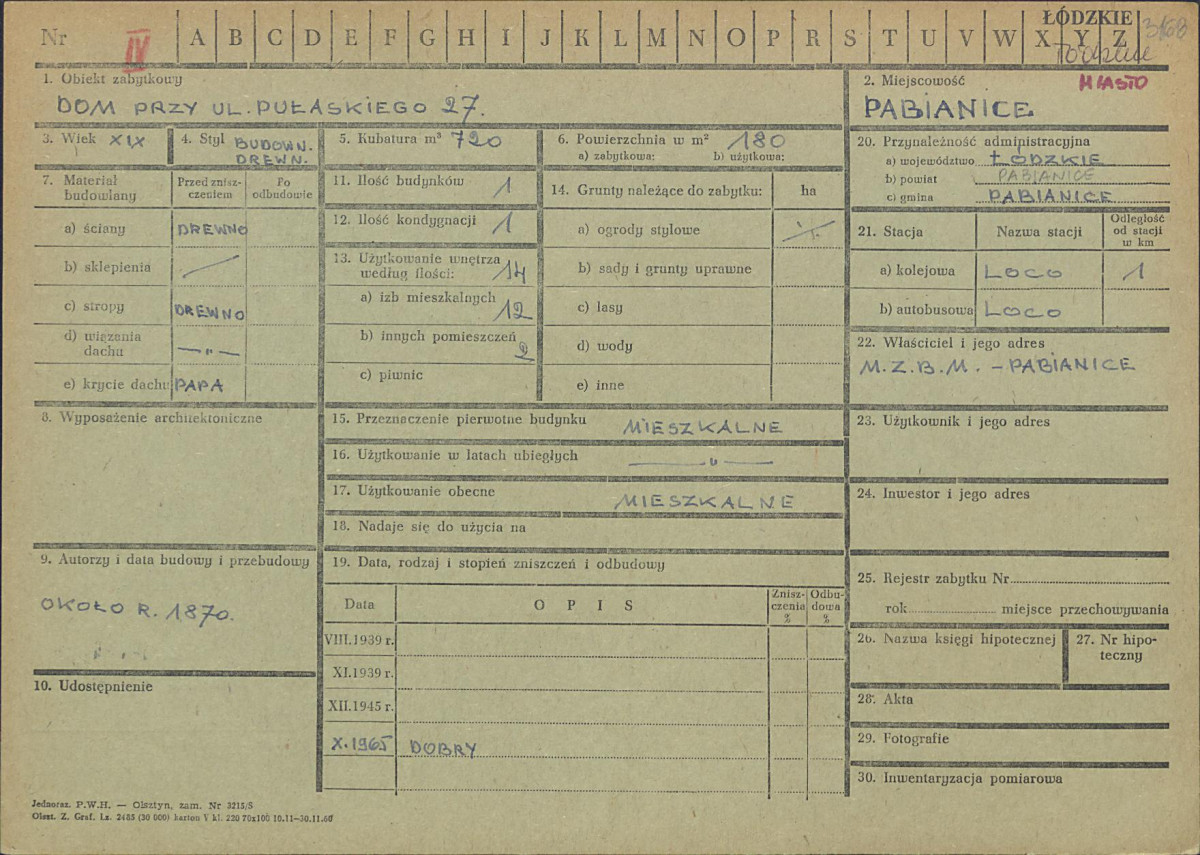 Nr IV A B C D E F G H I J K L M N O P R S T U V W X Y Z
ŁÓDZKIE
3168
1. Obiekt zabytkowy
DOM PRZY UL. PUŁASKIEGO 27.
2. Miejscowość MIASTO
PABIANICE
3. Wiek XIX
4. Styl BUDOWN.
DREWN.
5. Kubatura m³ 720
6. Powierzchnia w m² 180
a) zabytkowa: b) użytkowa:
7. Materiał
budowlany
Przed znisz-
czeniem
Po
odbudowie
a) ściany DREWNO
b) sklepienia
c) stropy DREWNO
d) wiązania
dachu —"—
e) krycie dachu PAPA
8. Wyposażenie architektoniczne
9. Autorzy i data budowy i przebudowy
OKOŁO R. 1870.
10. Udostępnienie
11. Ilość budynków 1
12. Ilość kondygnacji 1
13. Użytkowanie wnętrza
według ilości: 14
a) izb mieszkalnych 12
b) innych pomieszczeń 2
c) piwnic
14. Grunty należące do zabytku: ha
a) ogrody stylowe
b) sady i grunty uprawne
c) lasy
d) wody
e) inne
15. Przeznaczenie pierwotne budynku MIESZKALNE
16. Użytkowanie w latach ubiegłych —"—
17. Użytkowanie obecne MIESZKALNE
18. Nadaje się do użycia na
19. Data, rodzaj i stopień zniszczeń i odbudowy
Data OPIS
Znisz-
czenia
%
Odbu-
dowa
%
VIII.1939 r.
XI.1939 r.
XII.1945 r.
X.1965 DOBRY
20. Przynależność administracyjna
a) województwo ŁÓDZKIE
b) powiat PABIANICE
c) gmina PABIANICE
21. Stacja Nazwa stacji
Odległość
od stacji
w km
a) kolejowa LOCO 1
b) autobusowa LOCO
22. Właściciel i jego adres
M.Z.B.M. - PABIANICE
23. Użytkownik i jego adres
24. Inwestor i jego adres
25. Rejestr zabytku Nr
rok miejsce przechowywania
26. Nazwa księgi hipotecznej
27. Nr hipo-
teczny
28. Akta
29. Fotografie
30. Inwentaryzacja pomiarowa
Jednoraz. P.W.H. — Olsztyn, zam. Nr 3215/S
Olszt. Z. Graf. Lz. 2485 (30 000) karton V kl. 220 70x100 10.11—30.11.60